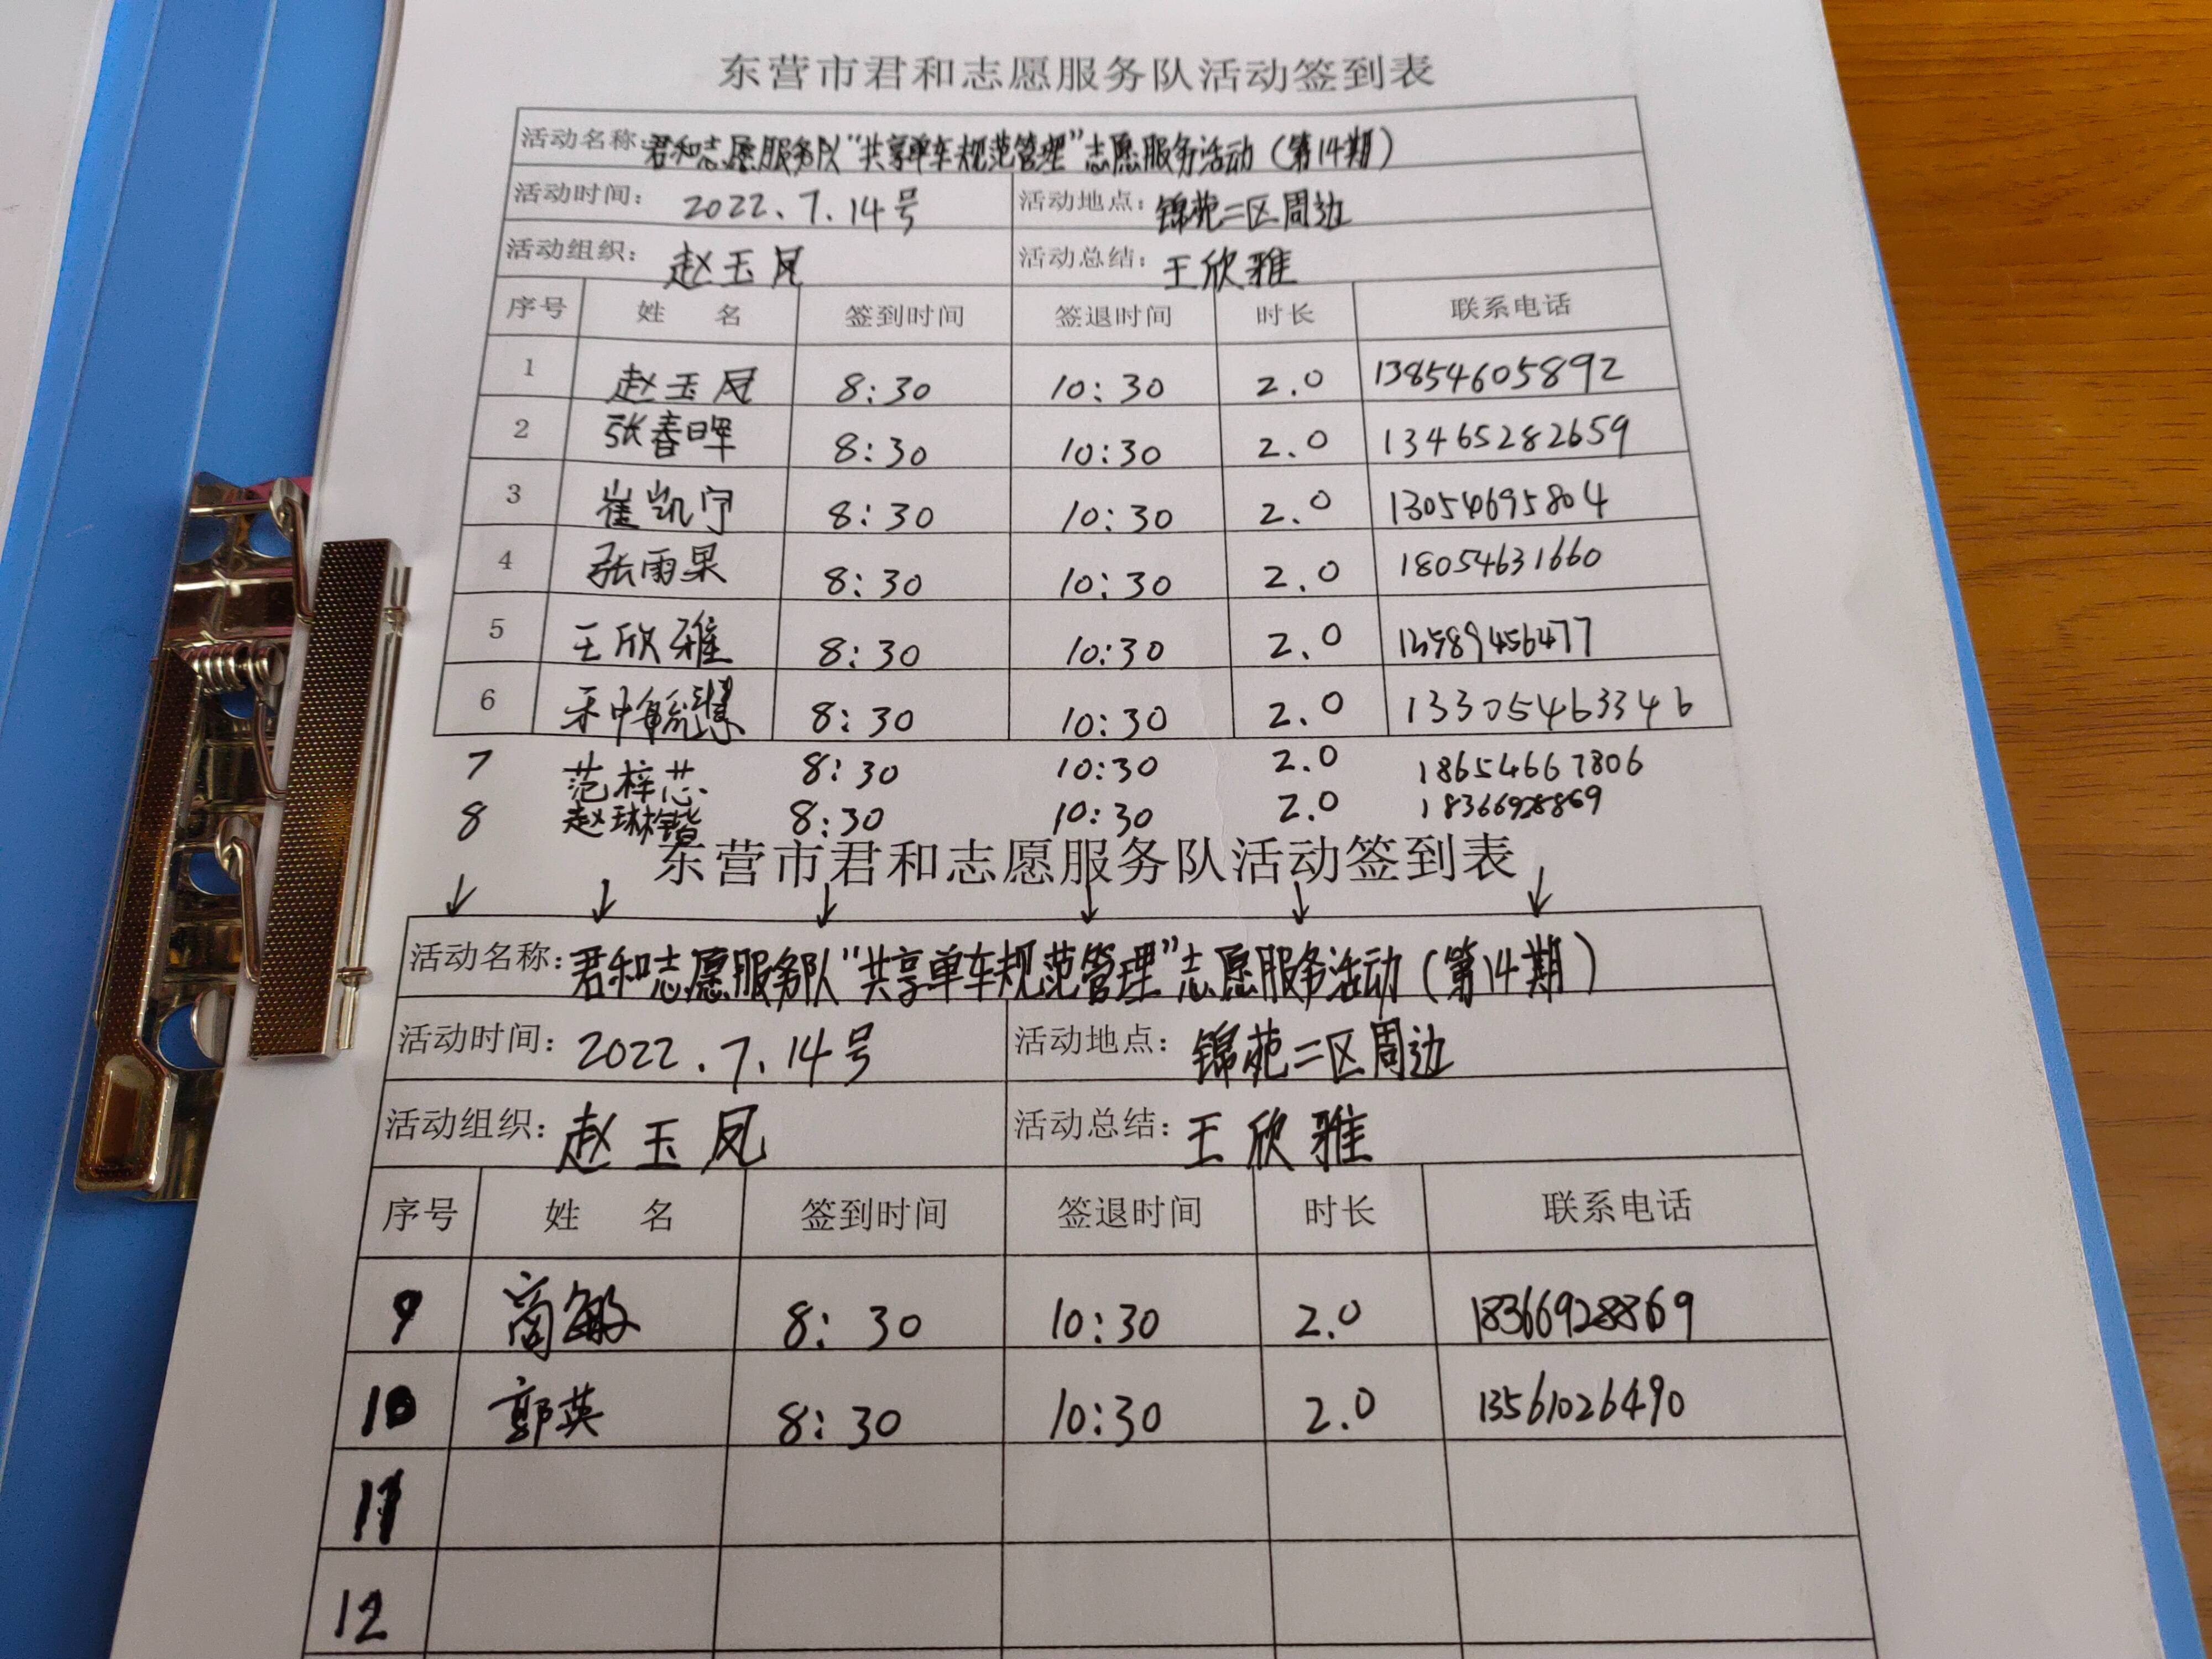 东营市君和志愿服务队活动签到表
活动名称:君和志愿服务队“共享单车规范管理”志愿服务活动(第14期)
活动时间: 2022.7.14号 活动地点: 锦苑二区周边
活动组织: 赵玉凤 活动总结: 王欣雅
序号 姓 名 签到时间 签退时间 时长 联系电话
1 赵玉凤 8:30 10:30 2.0 13854605892
2 张春晖 8:30 10:30 2.0 13465282659
3 崔凯宇 8:30 10:30 2.0 13054695804
4 张雨果 8:30 10:30 2.0 18054631660
5 王欣雅 8:30 10:30 2.0
6 8:30 10:30 2.0 13305463346
7 范梓芯 8:30 10:30 2.0 18654667806
8 8:30 10:30 2.0 18366928869
东营市君和志愿服务队活动签到表
活动名称:君和志愿服务队“共享单车规范管理”志愿服务活动(第14期)
活动时间: 2022.7.14号 活动地点: 锦苑二区周边
活动组织: 赵玉凤 活动总结: 王欣雅
序号 姓 名 签到时间 签退时间 时长 联系电话
9 商敏 8:30 10:30 2.0 18366928869
10 郭英 8:30 10:30 2.0 13561026490
11
12